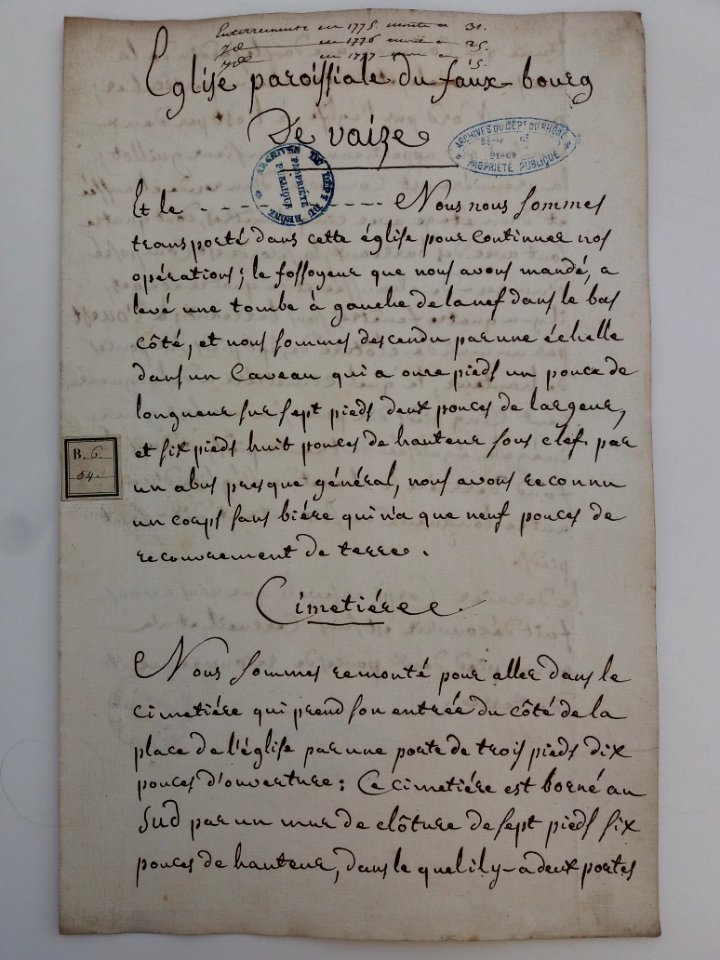 Enterrements en 1775 monte a 31.
en 1776 monte a 25.
en 1777 monte a 15.
Eglise paroissiale du faux-bourg
De vaize
ARCHIVES DU DEPT DU RHONE
PROPRIÉTÉ PUBLIQUE
ARCHIVES DU DEPT DU RHONE
PROPRIÉTÉ PUBLIQUE
Et le - - - - - - - - - - - - Nous nous sommes
transporté dans cette église pour continuer nos
opérations; le fossoyeur que nous avons mandé, a
levé une tombe à gauche de la nef dans le bas
côté, et nous sommes descendu par une échelle
dans un Caveau qui a onze pieds un pouce de
longueur sur sept pieds deux pouces de largeur,
et six pieds huit pouces de hauteur sous clef. par
un abus presque général, nous avons reconnu
un corps sans bière qui n'a que neuf pouces de
recouvrement de terre.
B. 6.
64
Cimetiére
Nous sommes remonté pour aller dans le
cimetiére qui prend son entrée du côté de la
place de l'église par une porte de trois pieds dix
pouces d'ouverture: Ce cimetiére est borné au
Sud par un mur de clôture de sept pieds six
pouces de hauteur, dans le quel il y-a deux portes